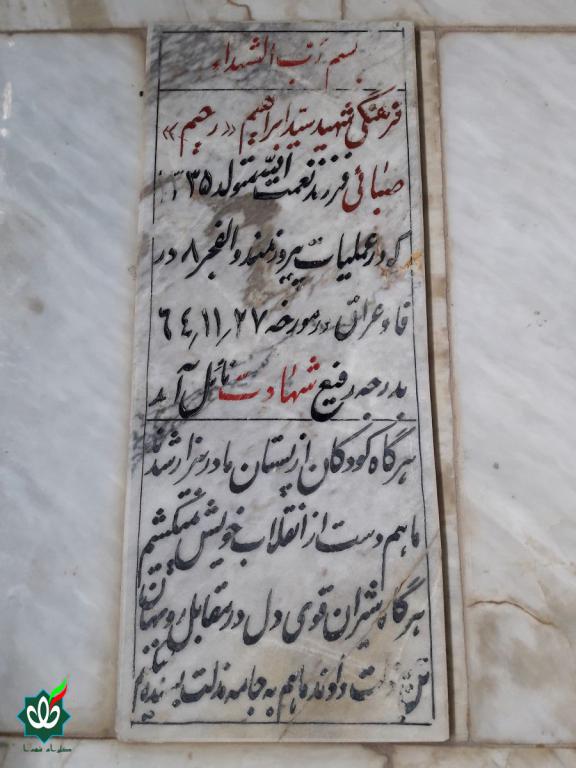 بسم رب الشهداء
فرهنگی شهید سید ابراهیم «رحیم»
صبائی فرزند نعمت الله متولد ۱۳۳۵
که در عملیات پیروزمند والفجر ۸ در
فاو عراق در مورخه ۶۴/۱۱/۲۷
بدرجه رفیع شهادت نائل آمد
هرگاه کودکان از پستان مادر بیزار شدند
ما هم دست از انقلاب خویش میکشیم
هرگاه شیران قوی دل در مقابل روبهان
تن به ذلت دادند ما هم به جامه مذلت